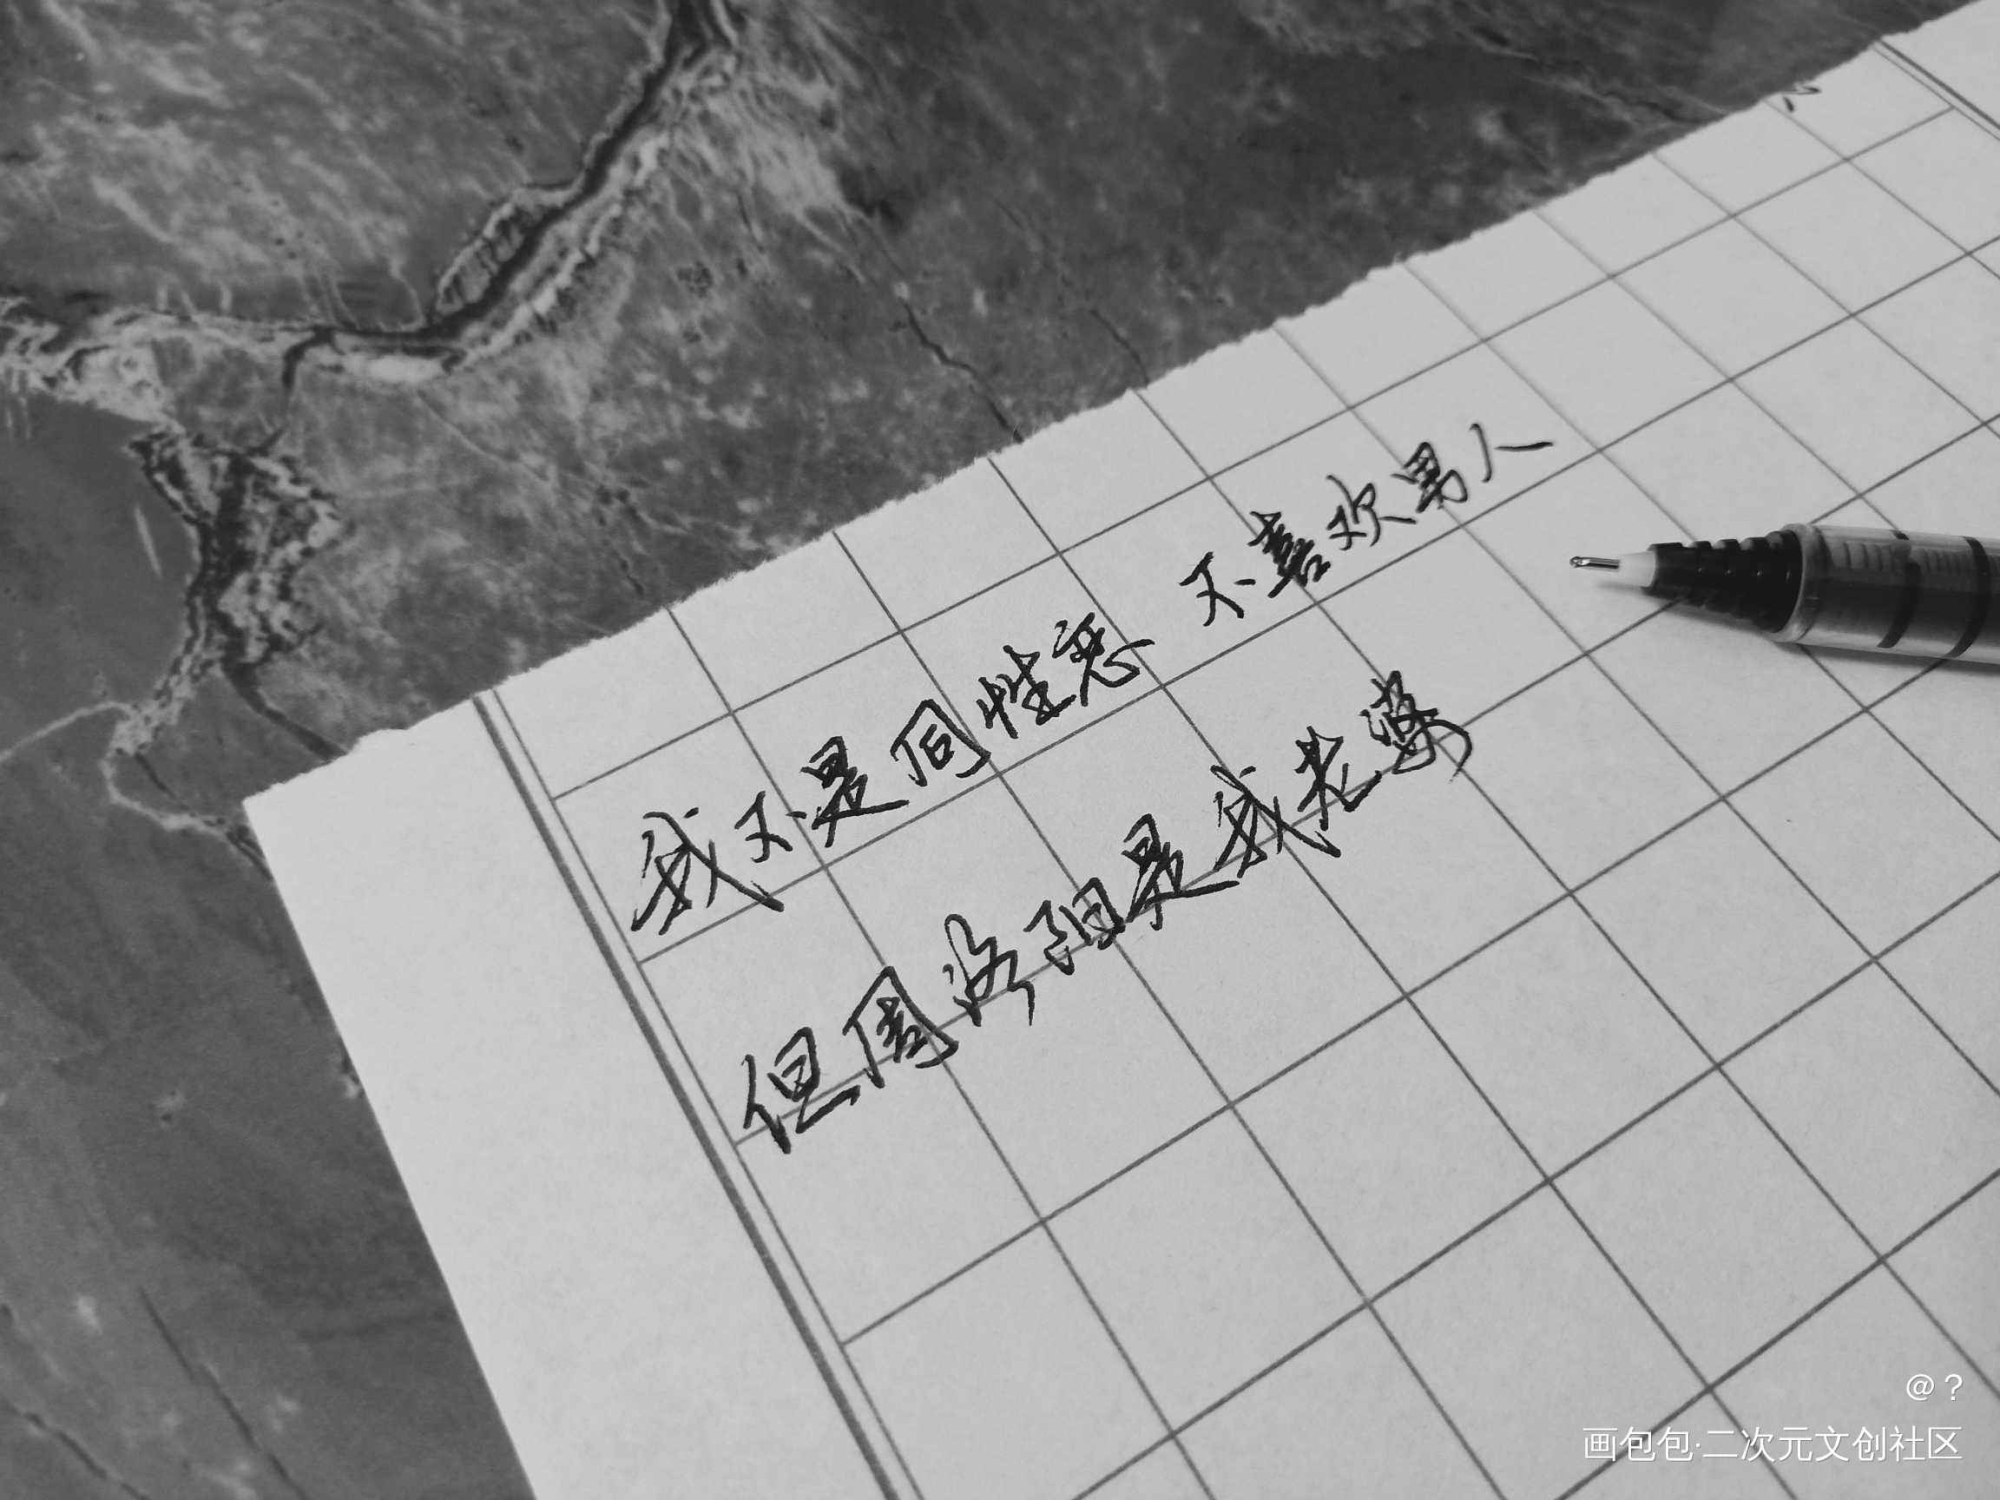 我不是同性恋 不喜欢男人
但周洛阳是我老婆
@？
画包包·二次元文创社区